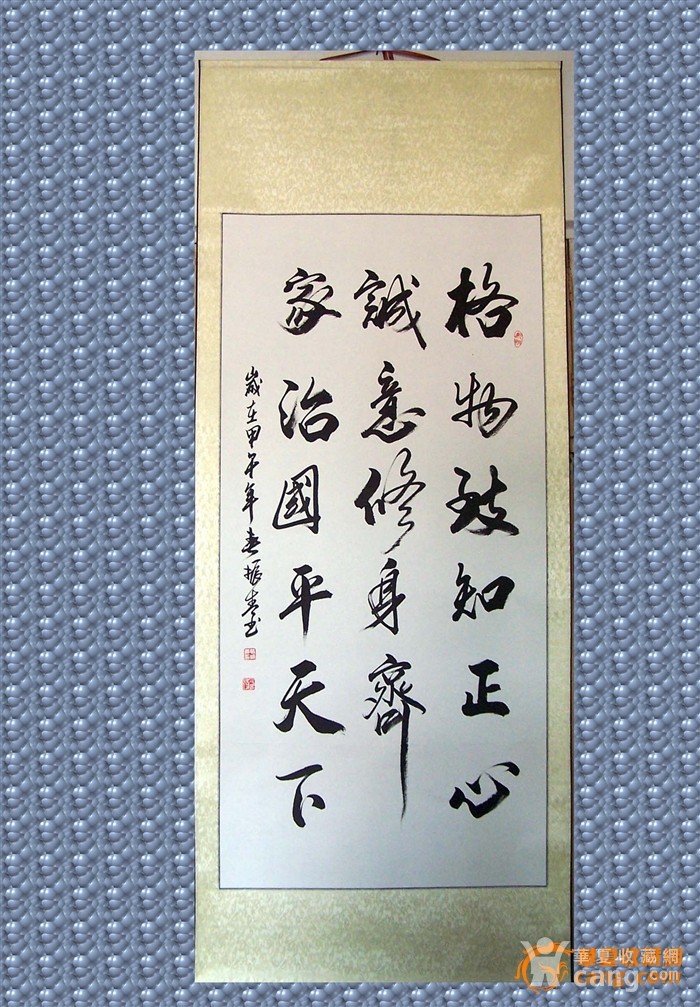 格物致知正心
誠意修身齊
家治國平天下
歲在甲午年春振春書
華夏收藏網
cang.com